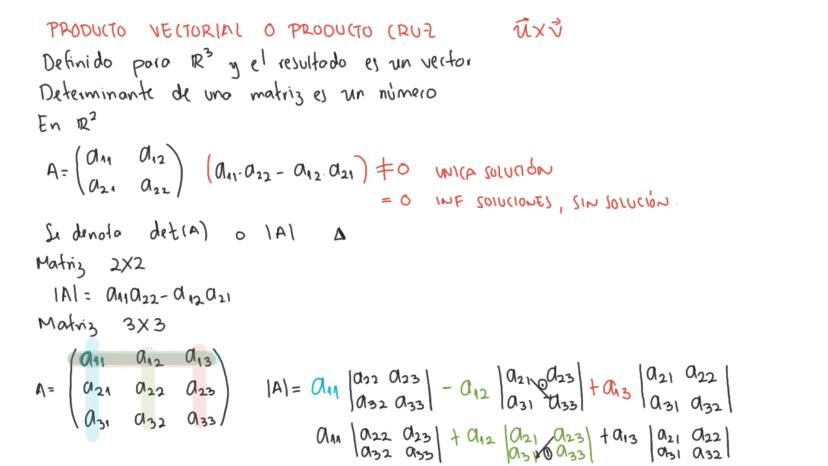 PRODUCTO VECTORIAL O PRODUCTO CRUZ u⃗×v⃗
Definido para ℝ³ y el resultado es un vector
Determinante de una matriz es un número
En ℝ²
A = (a11 a12 / a21 a22) (a11·a22 − a12·a21) ≠ 0 UNICA SOLUCIÓN
= 0 INF SOLUCIONES, SIN SOLUCIÓN.
Se denota det(A) o |A| Δ
Matriz 2X2
|A| = a11a22 − a12a21
Matriz 3X3
A = (a11 a12 a13 / a21 a22 a23 / a31 a32 a33) |A| = a11 |a22 a23 / a32 a33| − a12 |a21 a23 / a31 a33| + a13 |a21 a22 / a31 a32|
a11 |a22 a23 / a32 a33| + a12 |a21 a23 / a31 a33| + a13 |a21 a22 / a31 a32|